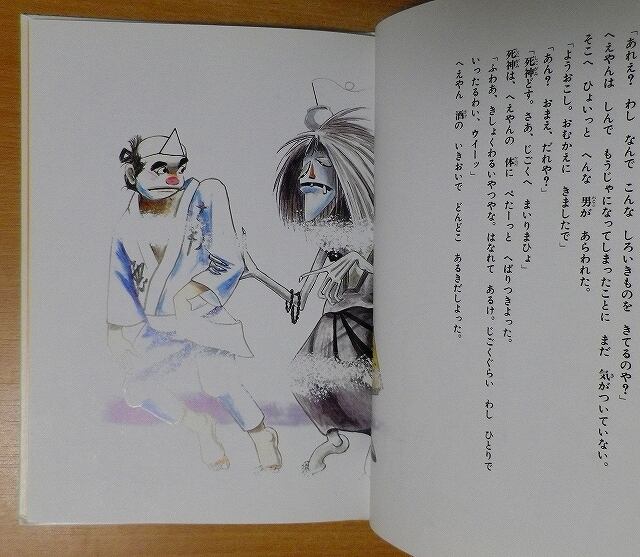 「あれえ? わし なんで こんな しろいきものを きてるのや?」
へえやんは しんで もうじゃになってしまったことに まだ 気がついていない。
そこへ ひょいっと へんな 男が あらわれた。
「ようおこし。おむかえに きましたで」
「あん? おまえ、だれや?」
「死神どす。さあ、じごくへ まいりまひょ」
死神は、へえやんの 体に べたーっと へばりつきよった。
「ふわあ、きしょくわるいやつやな。はなれて あるけ。じごくぐらい わし ひとりで
いったるわい、ウイーッ」
へえやん 酒の いきおいで どんどこ あるきだしよった。